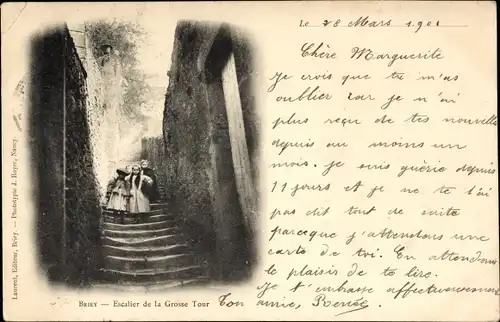 Le 28 Mars 1901
Chère Marguerite
Je crois que tu m'as
oublier car je n'ai
plus reçu de tes nouvelle
depuis au moins un
mois. je suis guérie depuis
11 jours et je ne te l'ai
pas dit tout de suite
parceque j'attendais une
carte de toi. En attendant
le plaisir de te lire.
Je t'embrasse affectueusement
Ton amie, Renée.
BRIEY — Escalier de la Grosse Tour
Laurent, Editeur, Briey. — Phototypie J. Royer, Nancy.